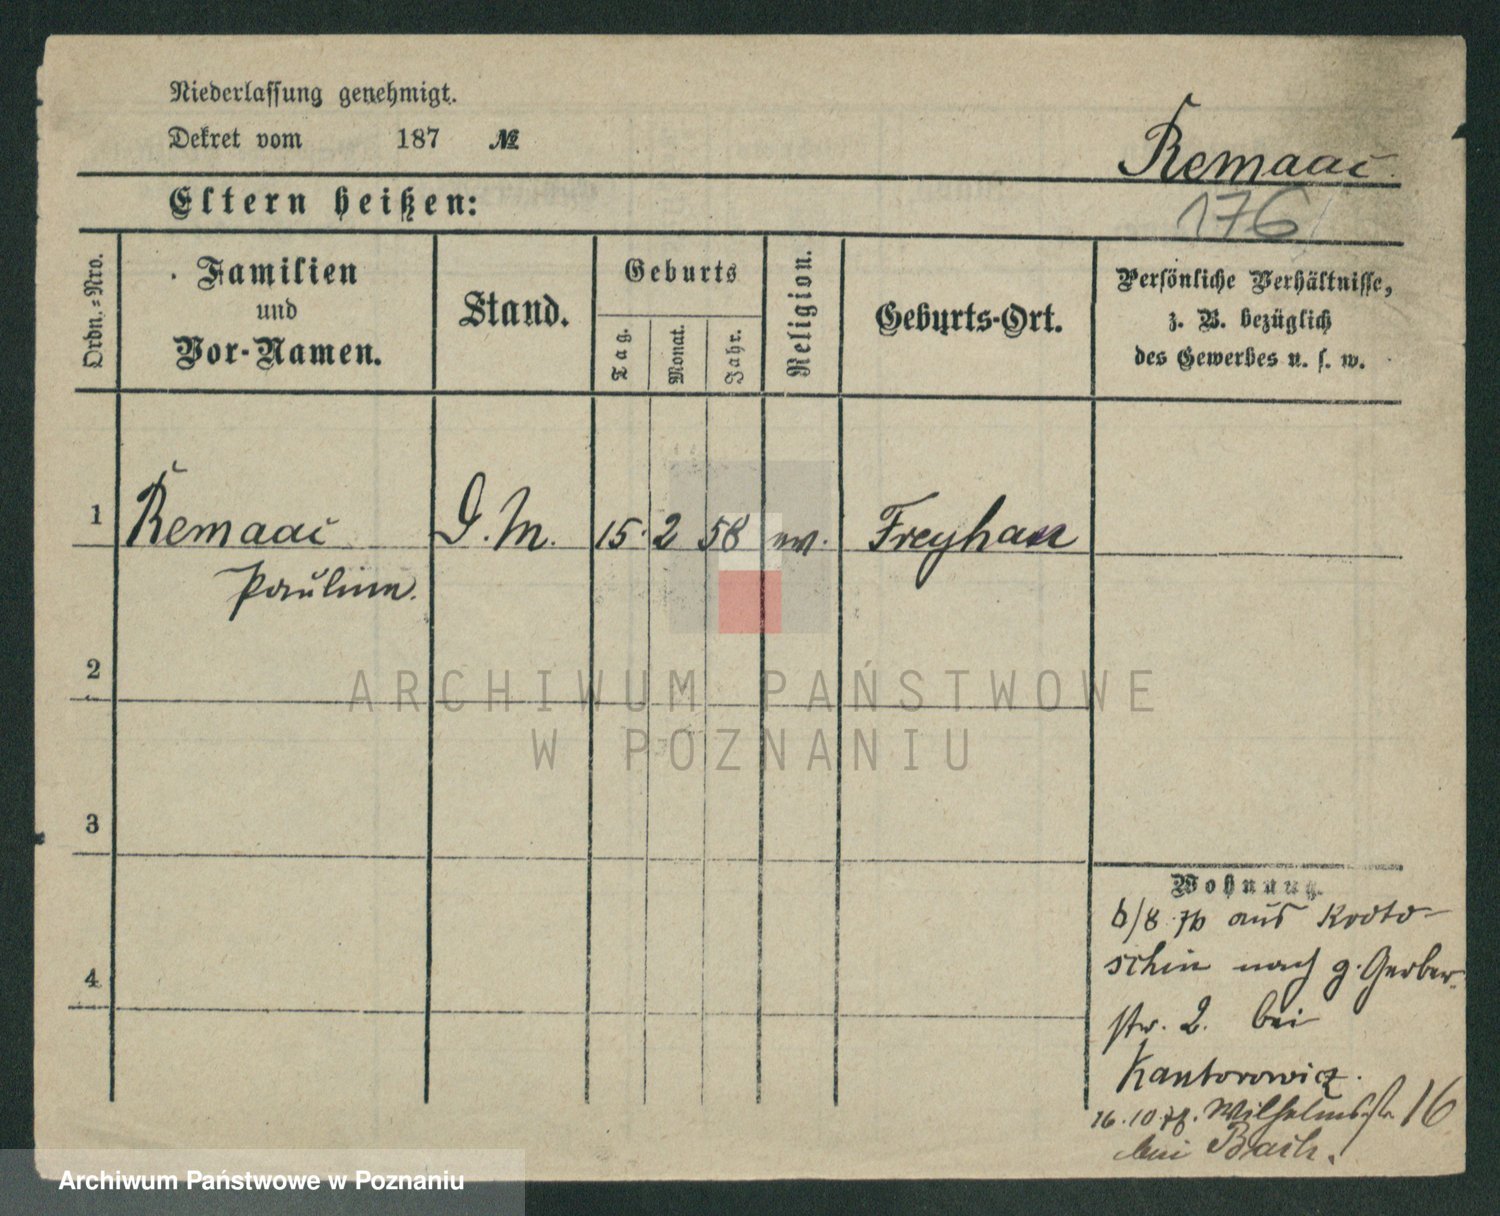 Niederlassung genehmigt.
Dekret vom 187 №
Remaac
Eltern heißen:
176
Ordn.=Nro.
Familien
und
Vor-Namen.
Stand.
Geburts
Tag.
Monat.
Jahr.
Religion.
Geburts-Ort.
Persönliche Verhältnisse,
z. B. bezüglich
des Gewerbes u. s. w.
1 Remaac D. M. 15. 2 58 Freyhan
Pauline.
2
ARCHIWUM PAŃSTWOWE
W POZNANIU
3
4
Wohnung.
6/8 76 aus Kroto-
schin nach g. Gerber
str. 2. bei
Kantorowicz.
16.10.78. Wilhelmsstr. 16
bei Bach.
Archiwum Państwowe w Poznaniu